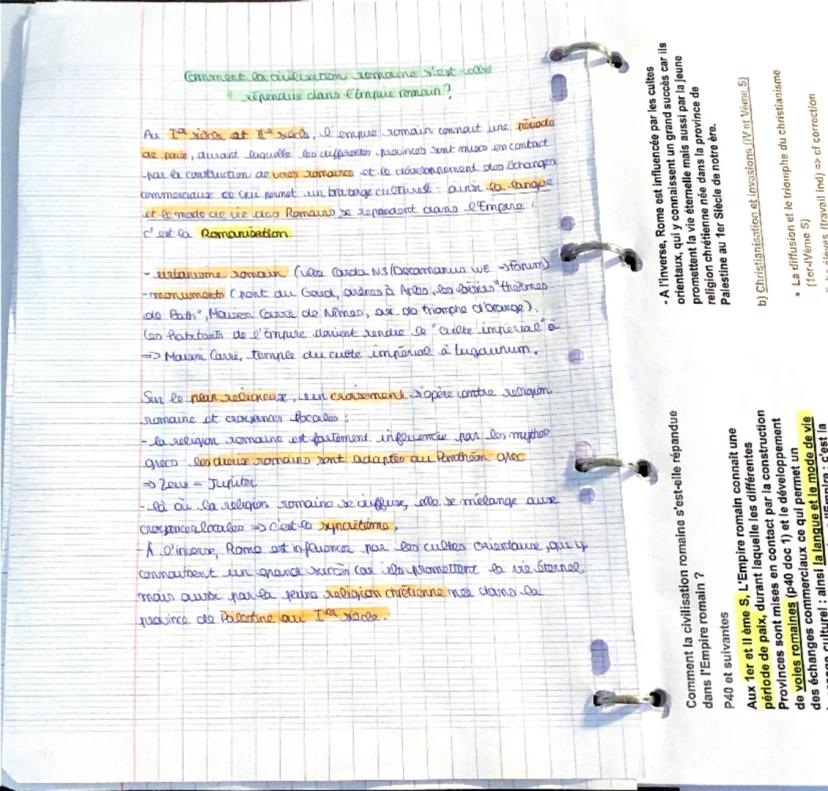 Comment la civilisation romaine s'est-elle
répendue dans l'Empire romain ?
Au Ier siècle et IIe siècle, l'empire romain connait une période
de paix, durant laquelle les différentes provinces sont mises en contact
par la construction de voies romaines et le développement des échanges
commerciaux ce qui permet un brassage culturel : ainsi la langue
et le mode de vie des Romains se repandent dans l'Empire :
c'est la Romanisation
- urbanisme romain (villes Cardo NS/Decamanus WE → Forum)
- monuments (pont du Gard, arènes à Arles, les "thermes
de Bath", Maison Carré de Nîmes, arc de triomphe d'Orange).
Les habitants de l'Empire doivent rendre le "culte impérial" à
=> Maison Carré, temple du culte impérial à Lugdunum.
Sur le plan religieux, un croisement s'opère entre religion
romaine et croyances locales :
- la religion romaine est fortement influencée par les mythes
grecs les dieux romains sont adaptés au Panthéon grec
=> Zeus = Jupiter
- là où la religion romaine se diffuse, elle se mélange aux
croyances locales => c'est le syncrétisme,
- À l'inverse, Rome est influencé par les cultes orientaux, qui y
connaissent un grand succès car ils promettent la vie éternel
mais aussi par la jeune religion chrétienne née dans la
province de Palestine au Ier siècle.
Comment la civilisation romaine s'est-elle répandue
dans l'Empire romain ?
P40 et suivantes
Aux 1er et II ème S, L'Empire romain connaît une
période de paix, durant laquelle les différentes
Provinces sont mises en contact par la construction
de voies romaines (p40 doc 1) et le développement
des échanges commerciaux ce qui permet un
culturel : ainsi la langue et le mode de vie
l'Empire : c'est la
- A l'inverse, Rome est influencée par les cultes
orientaux, qui y connaissent un grand succès car ils
promettent la vie éternelle mais aussi par la jeune
religion chrétienne née dans la province de
Palestine au 1er Siècle de notre ère.
b) Christianisation et invasions (IV et Vème S)
• La diffusion et le triomphe du christianisme
(1er-IVème S)
(travail ind) => cf correction